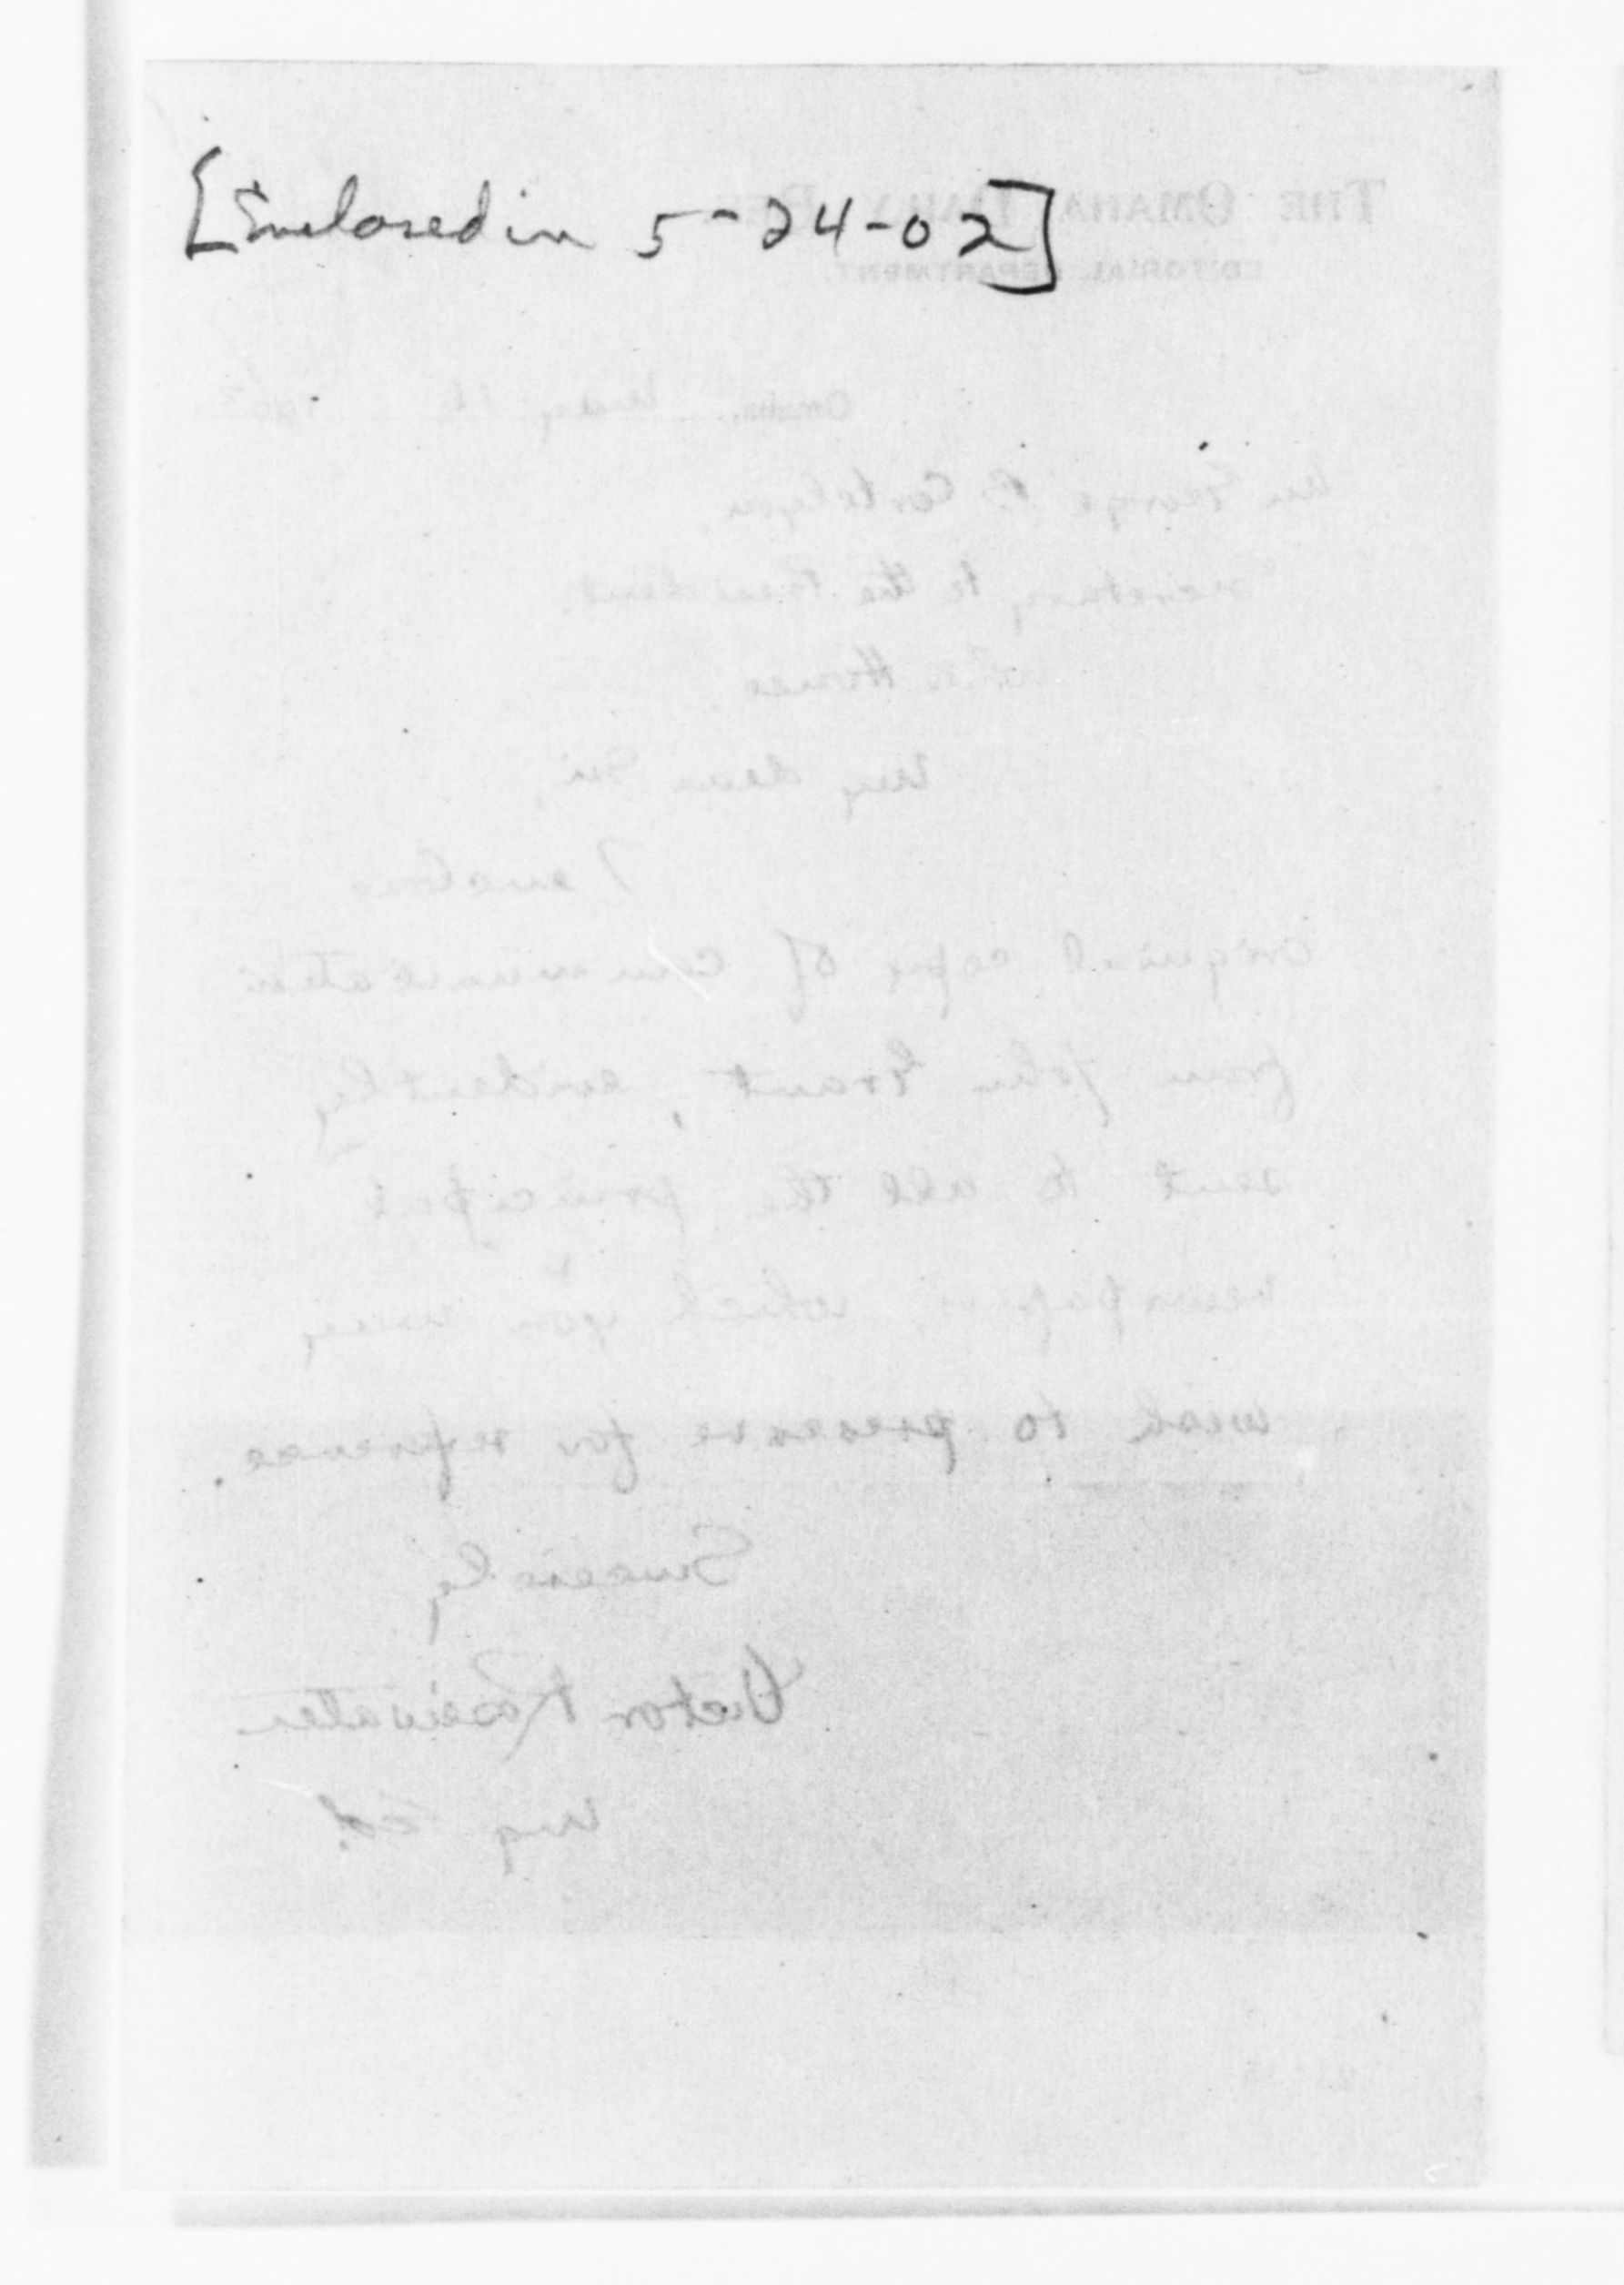 [Enclosed in 5-24-02]
THE OMAHA DAILY BEE
EDITORIAL DEPARTMENT.
Omaha, May 16 1902
Mr George B Cortelyou,
Secretary to the President
White House
My dear Sir,
I enclose
original copy of communication
from John Grant, evidently
sent to all the principal
newspapers, which you may
wish to preserve for reference.
Sincerely
Victor Rosewater
Mg Ed.